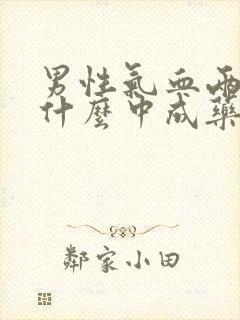 男性氣血兩
什麼中成藥
鄰家小田